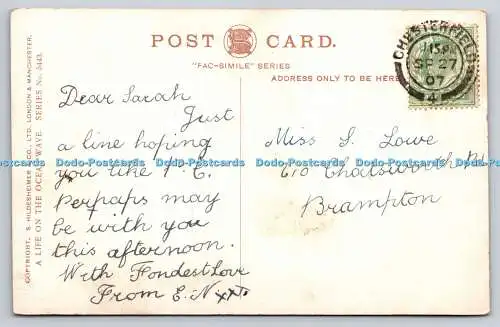 POST CARD.
"FAC-SIMILE" SERIES
ADDRESS ONLY TO BE HERE
COPYRIGHT. S. HILDESHEIMER & CO., LTD. LONDON & MANCHESTER.
A LIFE ON THE OCEAN WAVE. SERIES No. 5443.
CHESTERFIELD
SP 27
07
4
Dear Sarah
Just
a line hoping
you like P.C.
perhaps may
be with you
this afternoon.
With Fondest Love
From E. N. xxx
Miss S. Lowe
Chatsworth Rd
Brampton
Dodo-Postcards Dodo-Postcards Dodo-Postcards Dodo-Postcards Dodo-Postcards